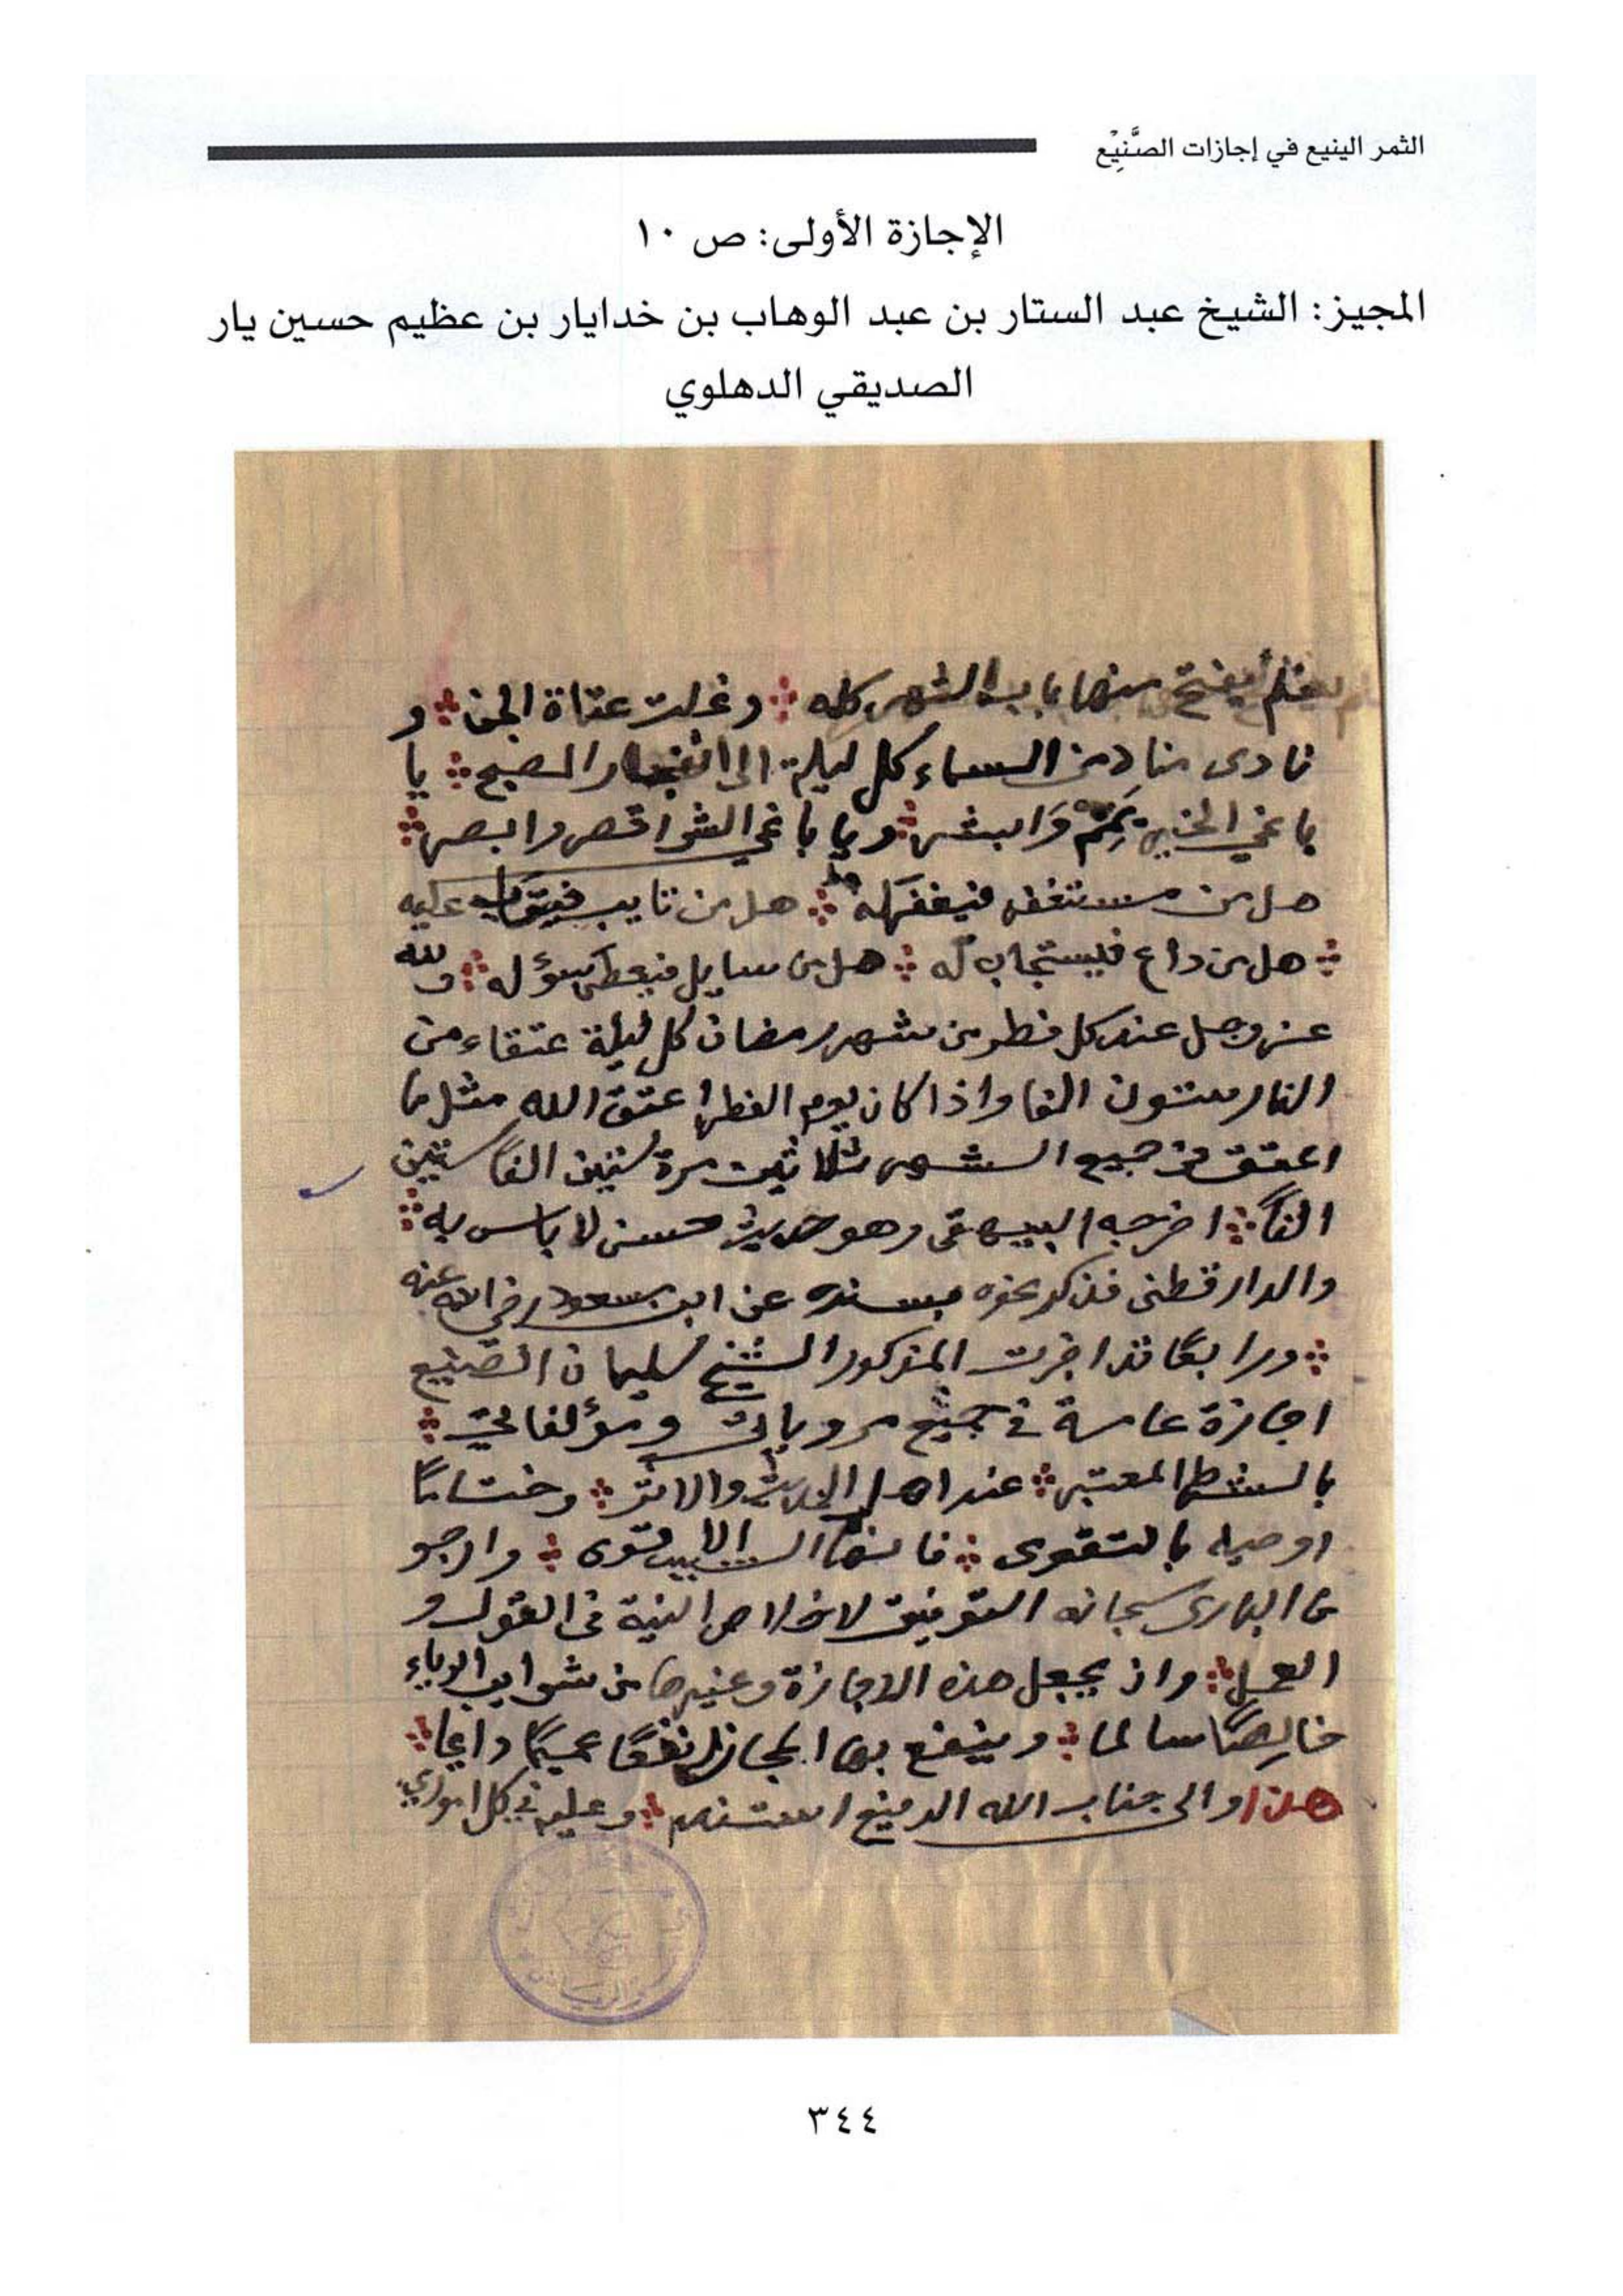 الثمر الينيع في إجازات الصَّنِيْع
الإجازة الأولى: ص ١٠
المجيز: الشيخ عبد الستار بن عبد الوهاب بن خدايار بن عظيم حسين يار
الصديقي الدهلوي
يفتح منها باب الشهر كله وغلت عتاة الجن و
نادى مناد من السماء كل ليلة الى انفجار الصبح يا
باغي الخير تمم وَابشر ويا باغي الشر اقصر وابصر
هل من مستغفر فيغفر له هل من تايب فيتوب عليه
هل من داع فيستجاب له هل من سايل فيعطى سؤله ولله
عز وجل عند كل فطر من شهر رمضان كل ليلة عتقاء من
النار ستون الفا واذا كان يوم الفطر اعتق الله مثل ما
اعتق من جميع الشهر ثلاثين مرة ستين الفاً ستين
الفاً اخرجه البيهقى وهو حديث حسن لا باس به
والدارقطنى فذكر نحوه بسنده عن ابن مسعود رضي الله عنه
ورابعًا قد اجزت المذكور الشيخ سليمان الصنيع
اجازة عامة في جميع مروياتي ومؤلفاتي
بالشرط المعتبر عند اهل الحديث والاثر وختامًا
اوصيه بالتقوى فانها السبب الاقوى وارجو
من البارى سبحانه التوفيق لاخلاص النية في القول و
العمل وان يجعل هذه الاجازة وغيرها من شوايب الرياء
خالِصًا سالما وينفع بها المجاز نفعًا عميمًا دايما
هذا والى جناب الله المنيع استند وعليه في كل اموري
٣٤٤